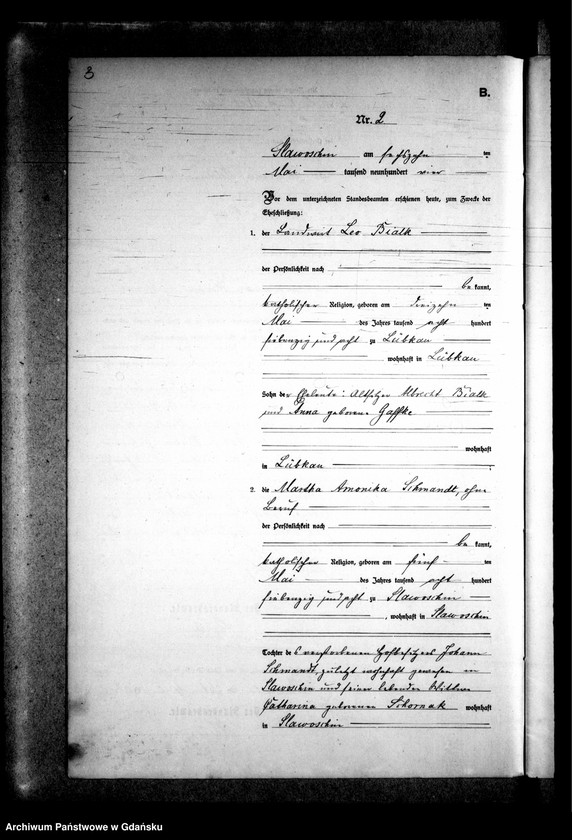 3
B.
Nr. 2
Slawoschin am sechszehn ten
Mai tausend neunhundert vier
Vor dem unterzeichneten Standesbeamten erschienen heute, zum Zwecke der
Eheschließung:
1. der Landwirt Leo Bialk
der Persönlichkeit nach
be kannt,
katholischer Religion, geboren am dreizehn ten
Mai des Jahres tausend acht hundert
siebenzig und acht zu Lübkau
, wohnhaft in Lübkau
Sohn der Eheleute: Altsitzer Albrecht Bialk
und Anna geborene Gaffke
wohnhaft
in Lübkau
2. die Martha Schmandt, ohne
Beruf
der Persönlichkeit nach
be kannt,
katholischer Religion, geboren am fünf ten
Mai des Jahres tausend acht hundert
siebenzig und acht zu Slawoschin
, wohnhaft in Slawoschin
Tochter des verstorbenen Hofbesitzers Johann
Schmandt, zuletzt wohnhaft gewesen in
Slawoschin und seiner lebenden Wittwe
Catharina geborenen wohnhaft
in Slawoschin
Archiwum Państwowe w Gdańsku